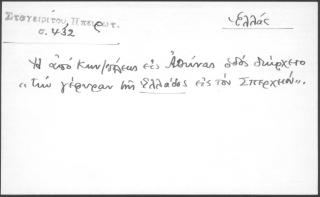 Σταγειρίτου, Ηπειρωτ.
σ. 432
Ἑλλάς
Ἡ ἀπό Κων/πόλεως εἰς Ἀθήνας ὁδός διήρχετο
«τήν γέφυραν τῆς Ἑλλάδος εἰς τόν Σπερχειόν».